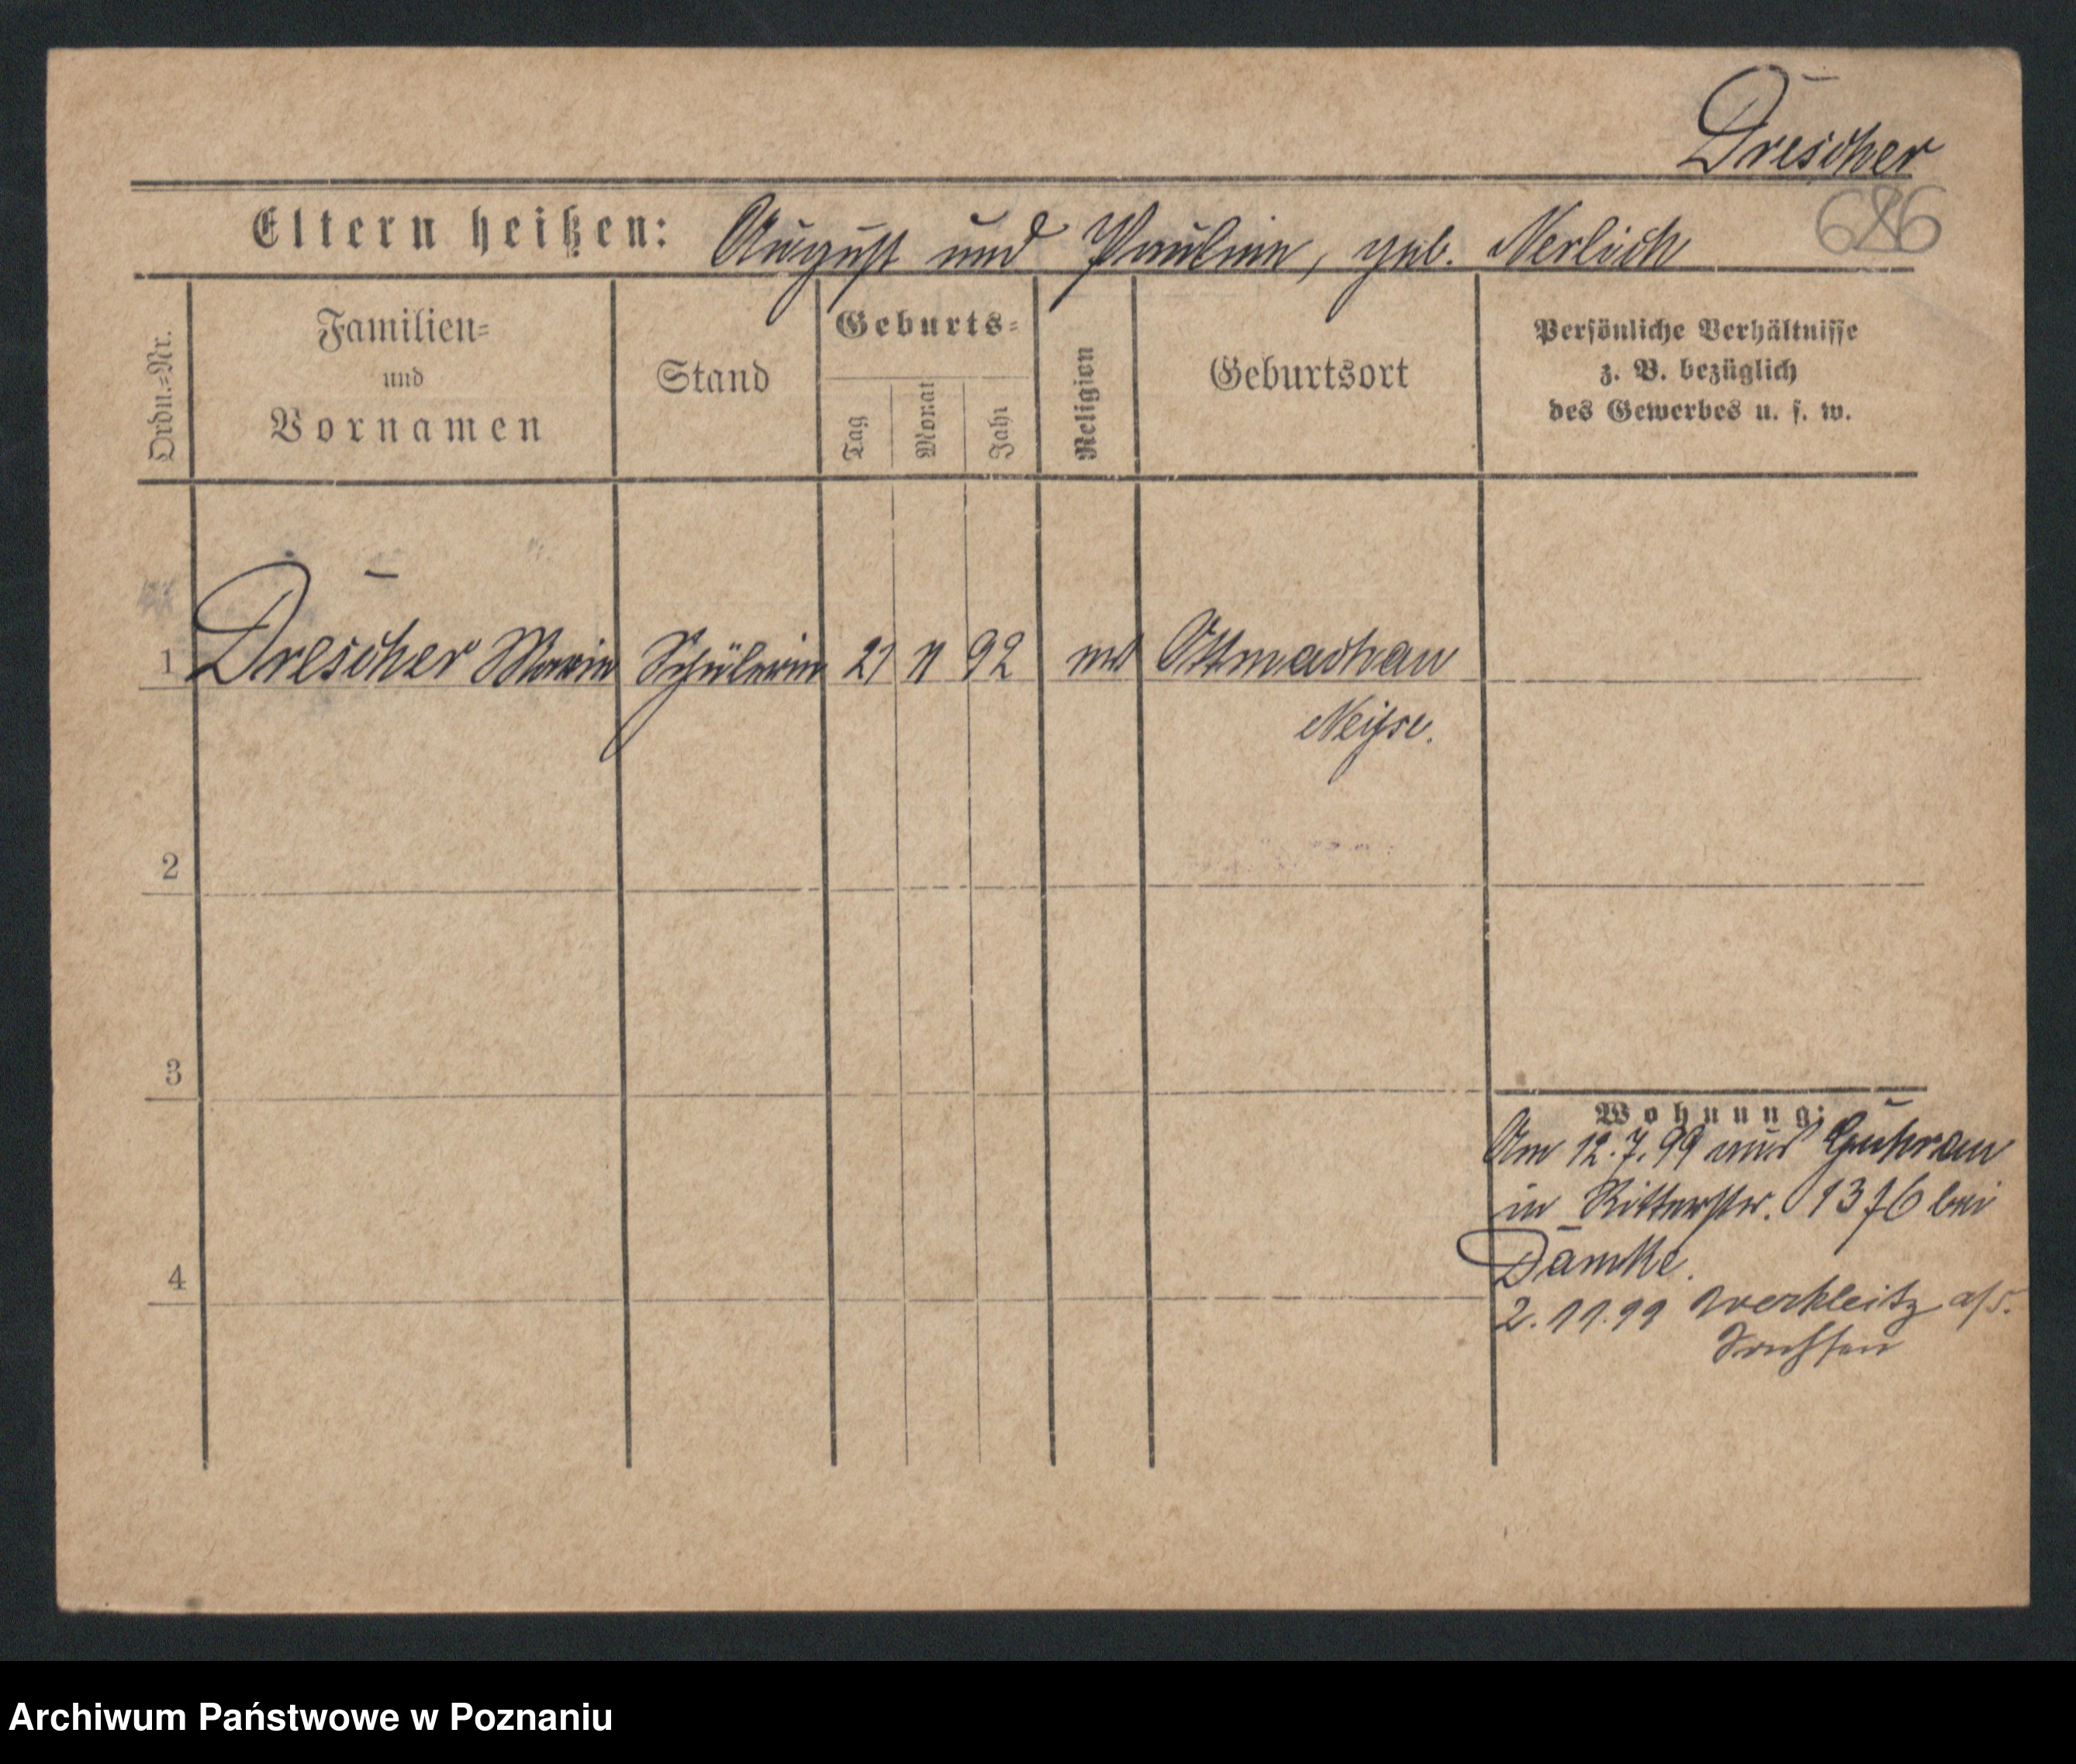 Drescher
686
Eltern heißen: August und Pauline, geb. Nerlich
Ordn.=Nr.
Familien=
und
Vornamen
Stand
Geburts=
Tag
Monat
Jahr
Religion
Geburtsort
Persönliche Verhältnisse
z. B. bezüglich
des Gewerbes u. s. w.
1 Drescher Marie Schülerin 21 11 92 Ottmachau
Neisse.
2
3
4
Wohnung:
Am 12.7.99 aus Guhrau
in Ritterstr. 1376 bei
Damke.
2.11.99
Archiwum Państwowe w Poznaniu